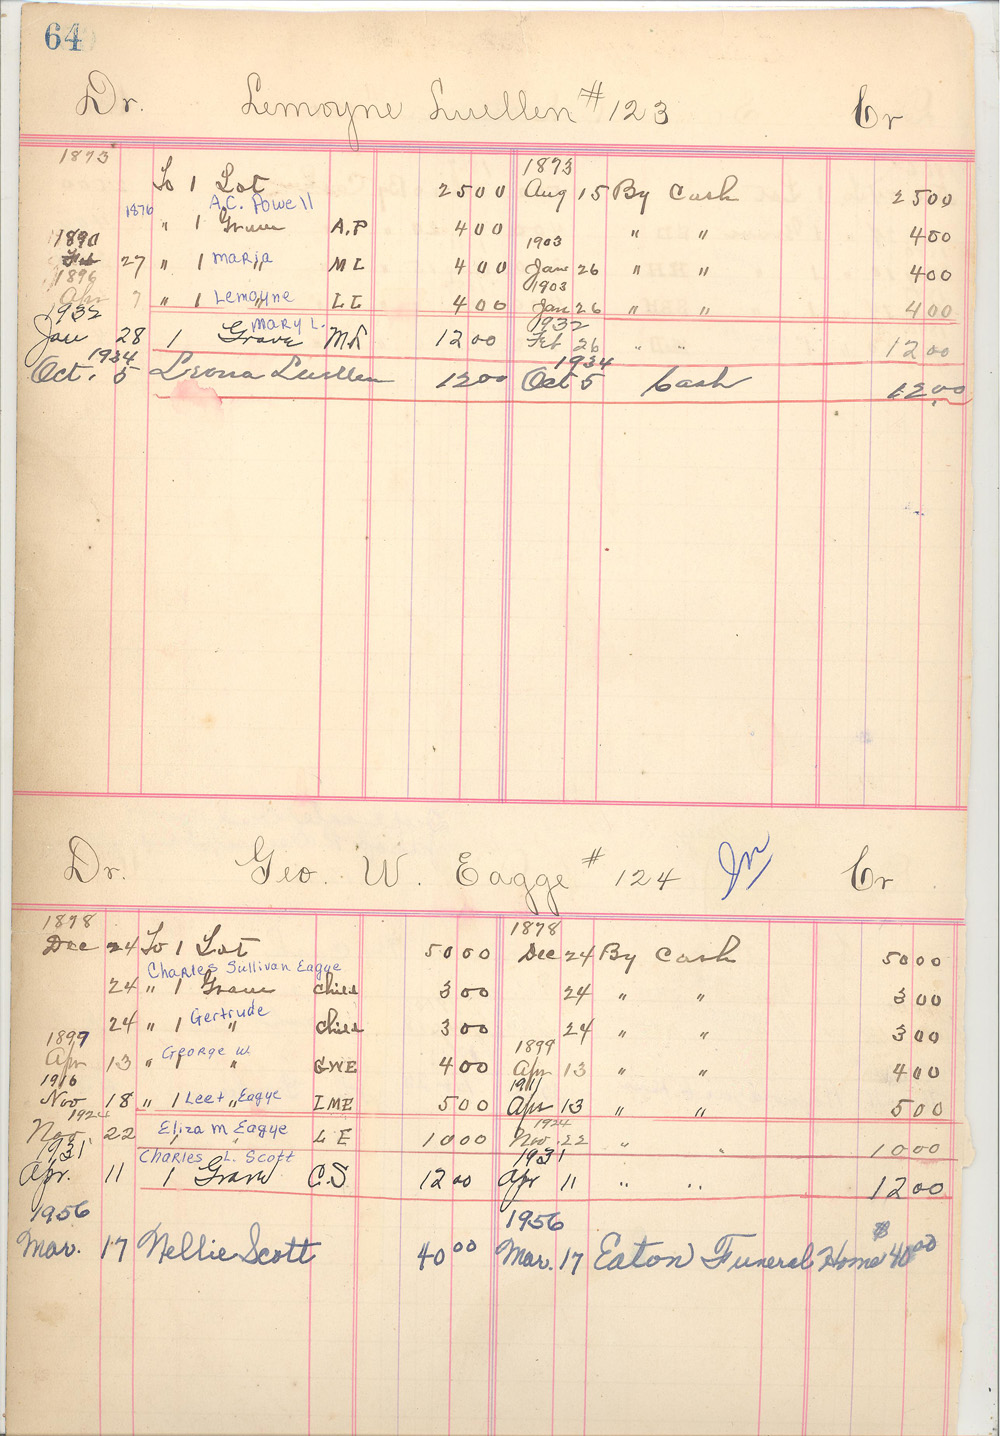 64
Dr. Lemoyne Luellen #123 Cr
1873 1873
To 1 Lot 25 00 Aug 15 By Cash 25 00
1876 A.C. Powell
" 1 Grave A.P 4 00 " " 4 00
1890 1903
27 " 1 Maria ML 4 00 Jan 26 " " 4 00
1896 1903
Apr 7 " 1 Lemoyne " LL 4 00 Jan 26 " " 4 00
1932 Mary L. 1932
Jan 28 1 Grave ML 12 00 Feb 26 " " 12 00
1934 1934
Oct. 5 Leona Luellen 12 00 Oct 5 Cash 12 00
Dr. Geo. W. Eagge #124 Cr
1878 1878
Dec 24 To 1 Lot 50 00 Dec 24 By Cash 50 00
Charles Sullivan Eagye
24 " 1 Grave Child 3 00 24 " " 3 00
24 " 1 Gertrude " Child 3 00 24 " " 3 00
1899 1899
Apr 13 " 1 George W. " GWE 4 00 Apr 13 " " 4 00
1916 1911
Nov 18 " 1 Leet " Eagye LME 5 00 Apr 13 " " 5 00
1924 1924
Nov. 22 Eliza M Eagye L E 10 00 Nov. 22 " 10 00
1931 Charles L. Scott 1931
Apr. 11 1 Grave C.S 12 00 Apr 11 " " 12 00
1956 1956
Mar. 17 Nellie Scott 40 00 Mar. 17 Eaton Funeral Home $ 40 00